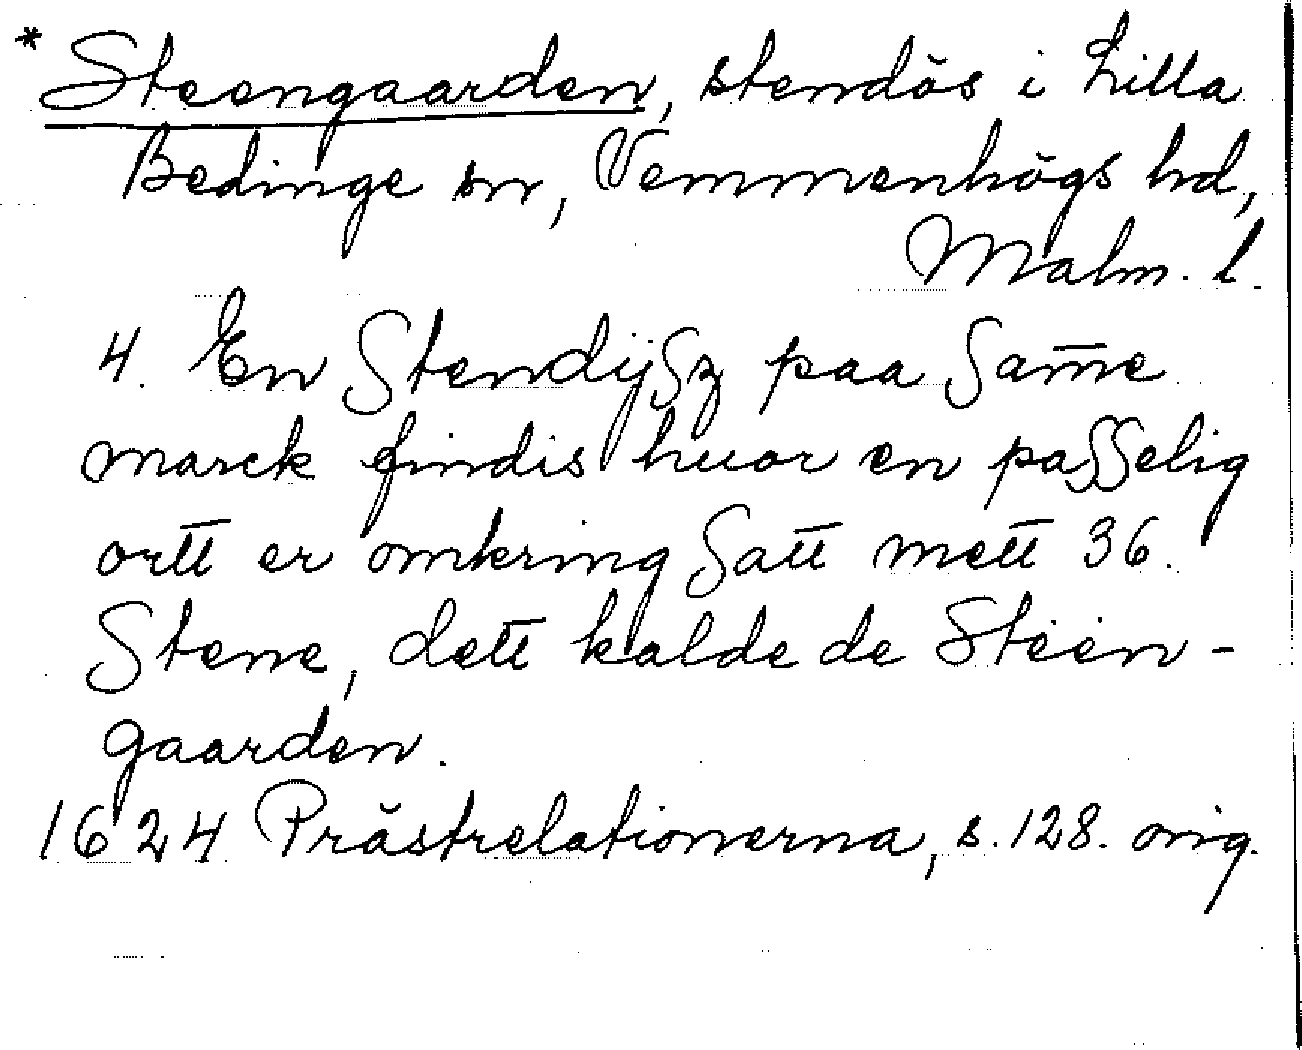 * Steengaarden, stendös i Lilla
Bedinge sn, Vemmenhögs hd,
Malm. l.
4. En Stendijsz paa Sam̅e
marck findis huor en passelig
ortt er omkring satt mett 36.
Stene, dett kalde de Steen-
gaarden.
1624 Prästrelationerna, s. 128. orig.